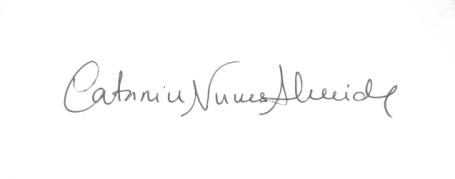 Catarina Nunes Almeida